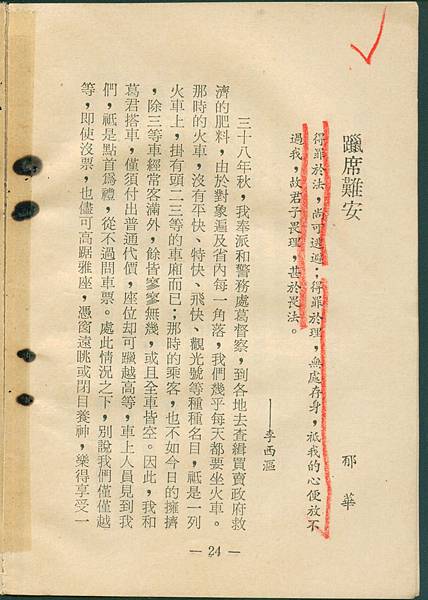 躐席難安
郁華
得罪於法，尚可逃避；得罪於理，無處存身，祗我的心便放不
過我，故君子畏理，甚於畏法。
——李西漚
三十八年秋，我奉派和警務處葛督察，到各地去查緝買賣政府救
濟的肥料，由於對象遍及省內每一角落，我們幾乎每天都要坐火車。
那時的火車，沒有平快、特快、飛快、觀光號等種種名目，祗是一列
火車上，掛有頭二三等的車廂而已；那時的乘客，也不如今日的擁擠
，除三等車經常客滿外，餘皆寥寥無幾，或且全車皆空。因此，我和
葛君搭車，僅須付出普通代價，座位却可躐越高等，車上人員見到我
們，祗是點首爲禮，從不過問車票。處此情況之下，別說我們僅僅越
等，即使沒票，也儘可高踞雅座，憑窗遠眺或閉目養神，樂得享受一
— 24 —